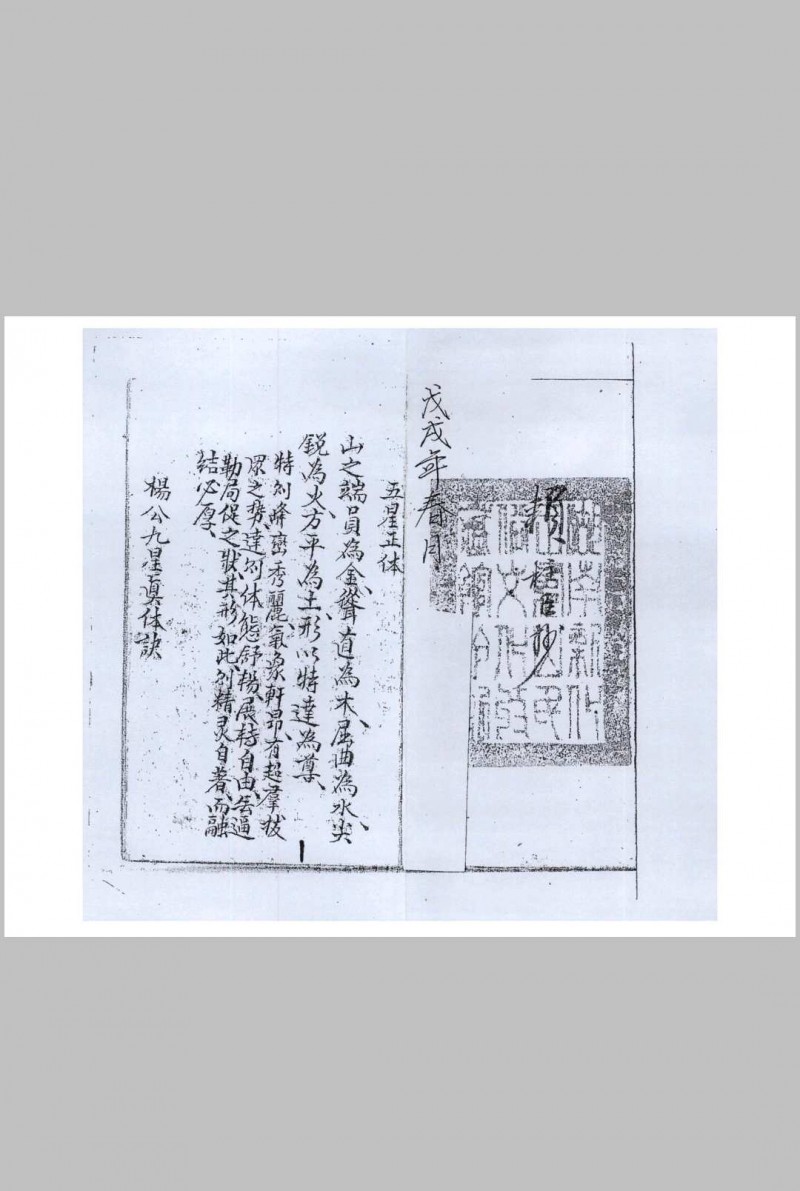 抄
戊戌年春月
五星正体
山之端員為金、聳道為木、屈曲為水、尖
銳為火、方平為土、形以特達為尊、
特則峰巒秀麗、氣象軒昂、有超羣拔
眾之势、達則体態舒暢、展轉自由、無逼
勒局促之狀、其形如此、則精灵自著、而融
結必厚、
楊公九星真体訣